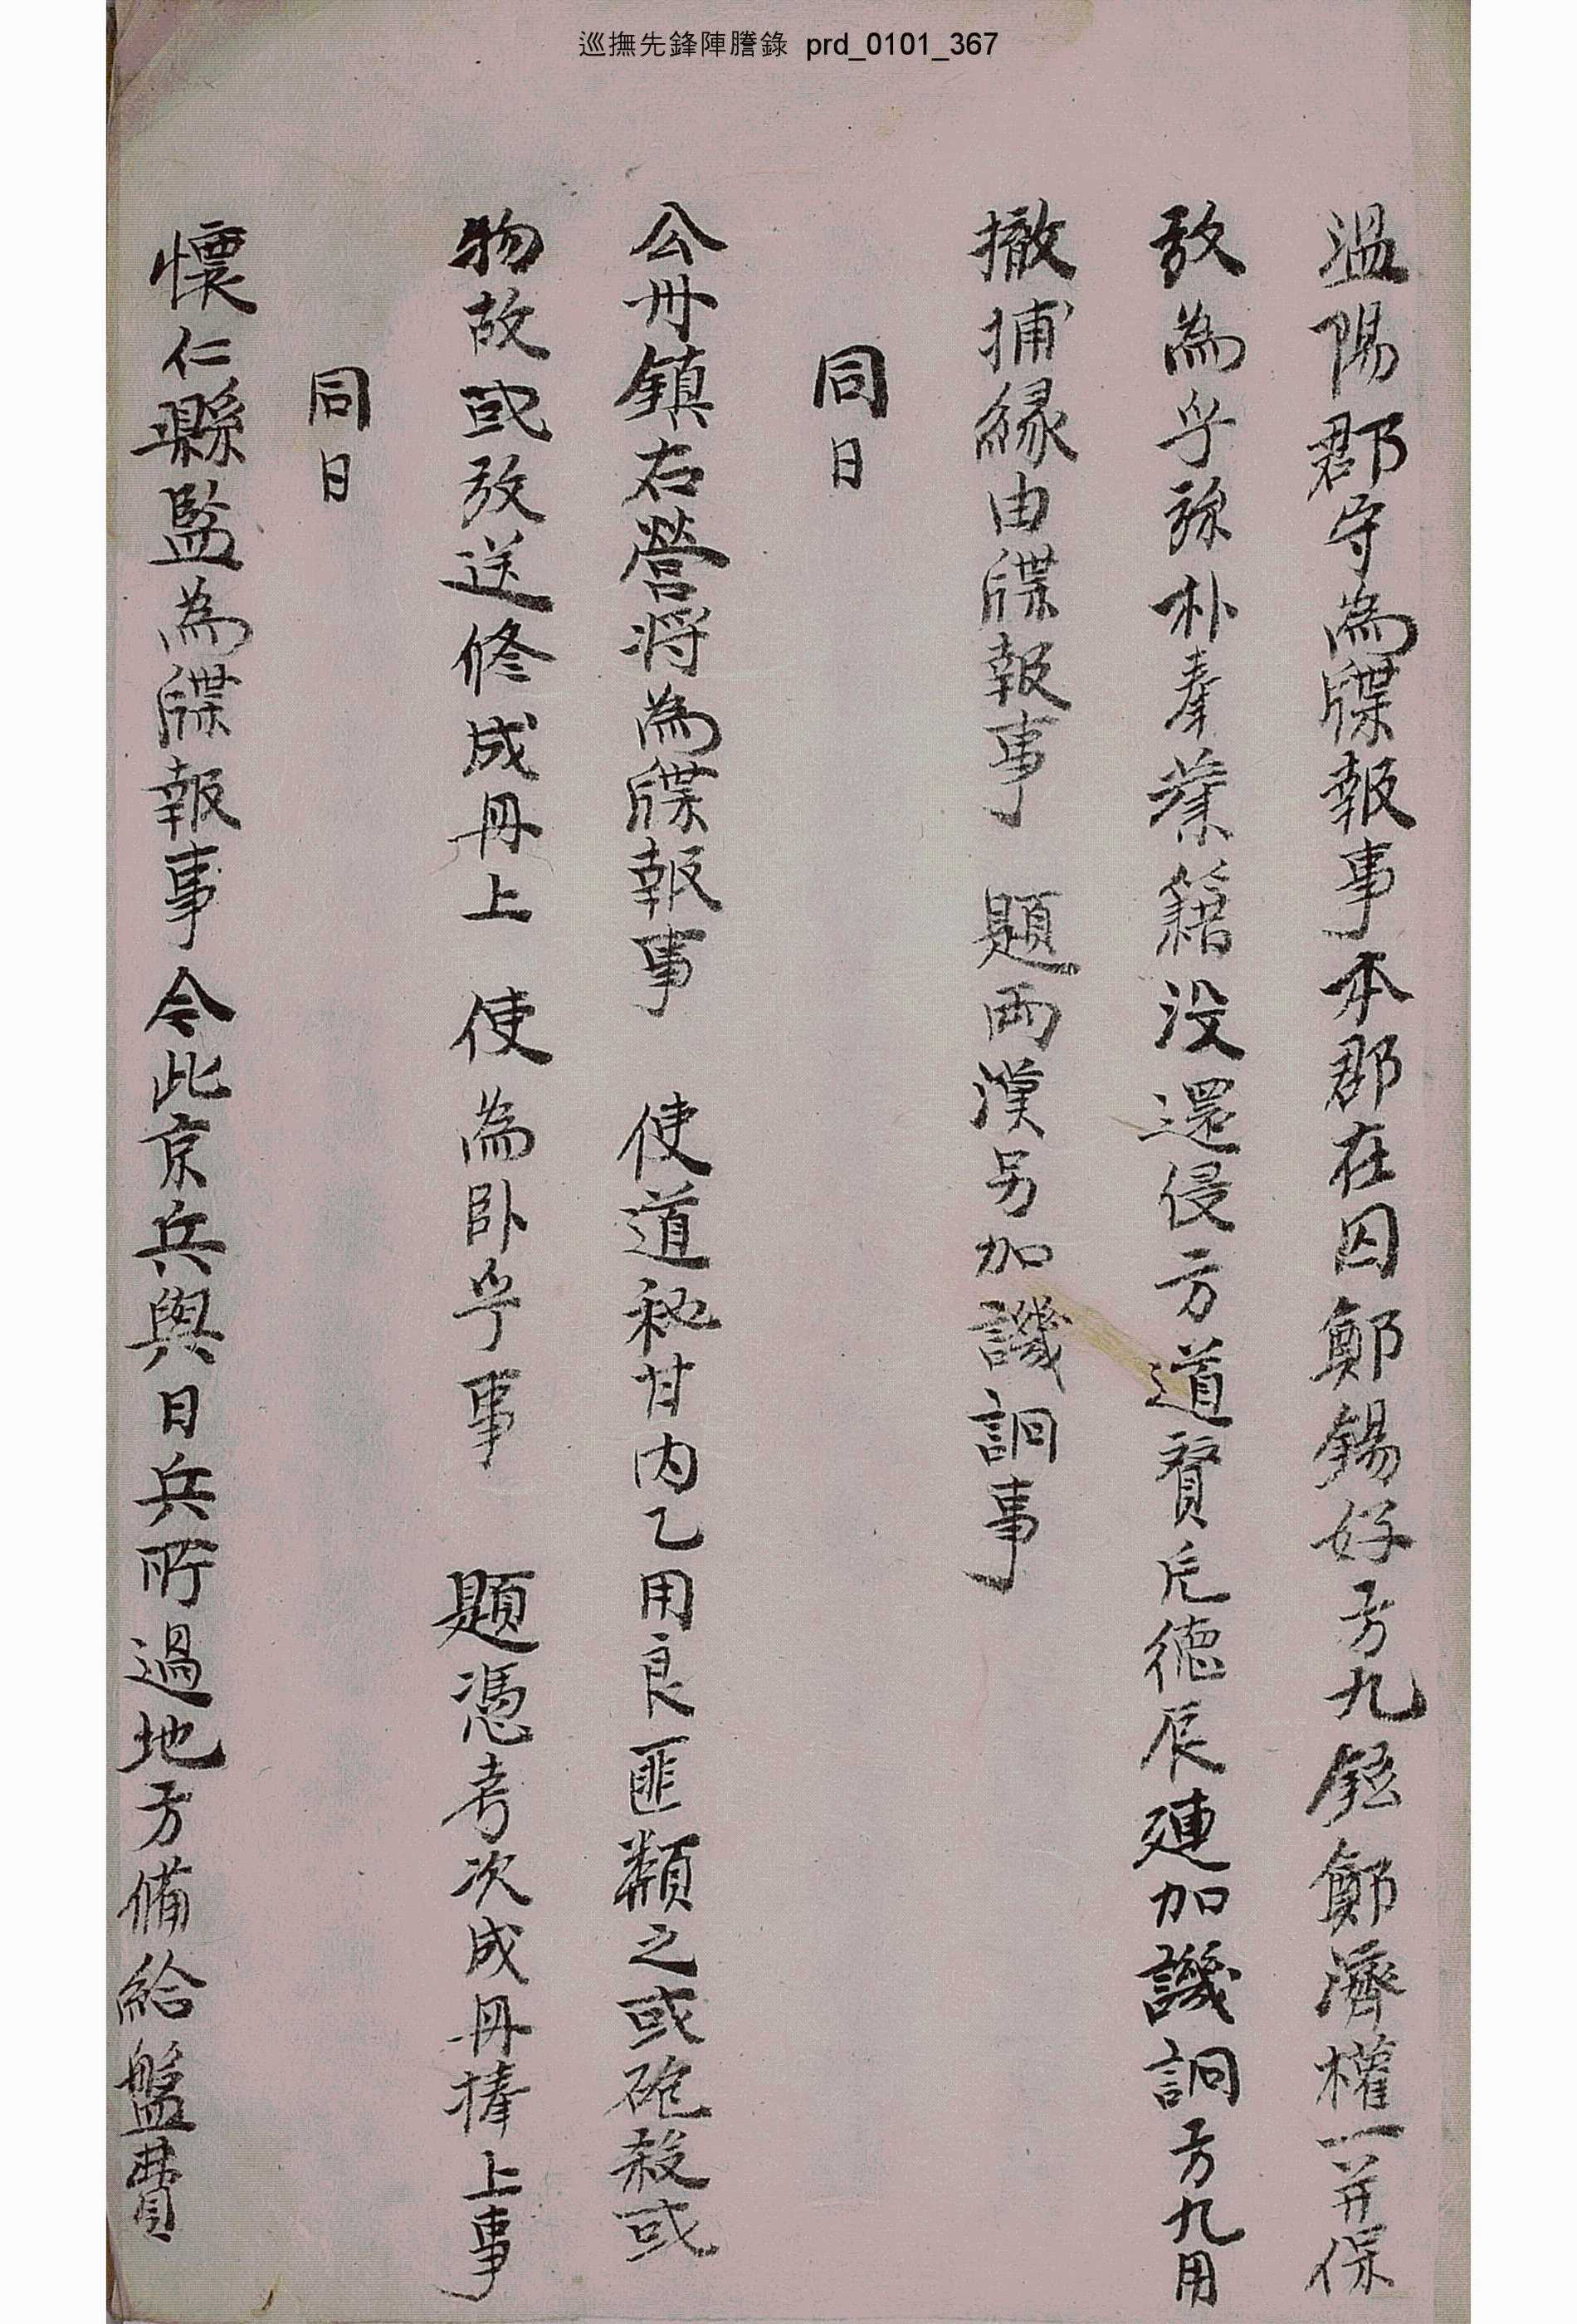 巡撫先鋒陣謄錄 prd_0101_367
溫陽郡守為牒報事本郡在囚鄭錫好方九鉉鄭濟權一并保
放為乎旀朴奉業籍沒還侵方道賢兄德辰連加譏詗方九用
撤捕緣由牒報事 題兩漢另加譏詗事
同日
公州鎮右營將為牒報事 使道秘甘內乙用良匪類之或砲殺或
物故或放送修成冊上 使為臥乎事 題憑考次成冊捧上事
同日
懷仁縣監為牒報事令此京兵與日兵所過地方備給盤費